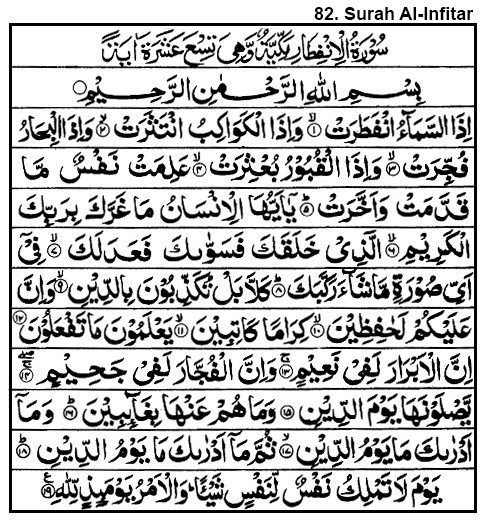 82. Surah Al-Infitar
سُوْرَةُ الْاِنْفِطَارِ مَكِّيَّةٌ وَّهِىَ تِسْعَ عَشَرَةَ اٰيَةً
بِسْمِ اللّٰهِ الرَّحْمٰنِ الرَّحِيْمِ
اِذَا السَّمَآءُ انْفَطَرَتْ ۙ‏﴿۱﴾ وَاِذَا الْكَوَاكِبُ انْتَثَرَتْ ۙ‏﴿۲﴾ وَاِذَا الْبِحَارُ
فُجِّرَتْ ۙ‏﴿۳﴾ وَاِذَا الْقُبُوْرُ بُعْثِرَتْ ۙ‏﴿۴﴾ عَلِمَتْ نَفْسٌ مَّا
قَدَّمَتْ وَاَخَّرَتْ ؕ‏﴿۵﴾ يٰۤاَيُّهَا الْاِنْسَانُ مَا غَرَّكَ بِرَبِّكَ
الْكَرِيْمِ ۙ‏﴿۶﴾ الَّذِىْ خَلَقَكَ فَسَوّٰٮكَ فَعَدَلَكَ ۙ‏﴿۷﴾ فِىْۤ
اَىِّ صُوْرَةٍ مَّا شَآءَ رَكَّبَكَ ؕ‏﴿۸﴾ كَلَّا بَلْ تُكَذِّبُوْنَ بِالدِّيْنِ ۙ‏﴿۹﴾ وَاِنَّ
عَلَيْكُمْ لَحٰفِظِيْنَ ۙ‏﴿۱۰﴾ كِرَامًا كَاتِبِيْنَ ۙ‏﴿۱۱﴾ يَعْلَمُوْنَ مَا تَفْعَلُوْنَ ‏﴿۱۲﴾
اِنَّ الْاَبْرَارَ لَفِىْ نَعِيْمٍ ۚ‏﴿۱۳﴾ وَاِنَّ الْفُجَّارَ لَفِىْ جَحِيْمٍ ۖۚ‏﴿۱۴﴾
يَّصْلَوْنَهَا يَوْمَ الدِّيْنِ ‏﴿۱۵﴾ وَمَا هُمْ عَنْهَا بِغَآٮِٕبِيْنَ ؕ‏﴿۱۶﴾ وَمَاۤ
اَدْرٰٮكَ مَا يَوْمُ الدِّيْنِ ۙ‏﴿۱۷﴾ ثُمَّ مَاۤ اَدْرٰٮكَ مَا يَوْمُ الدِّيْنِ ؕ‏﴿۱۸﴾
يَوْمَ لَا تَمْلِكُ نَفْسٌ لِّنَفْسٍ شَيْـًٔا ؕ وَالْاَمْرُ يَوْمَٮِٕذٍ لِّلّٰهِ ‏﴿۱۹﴾